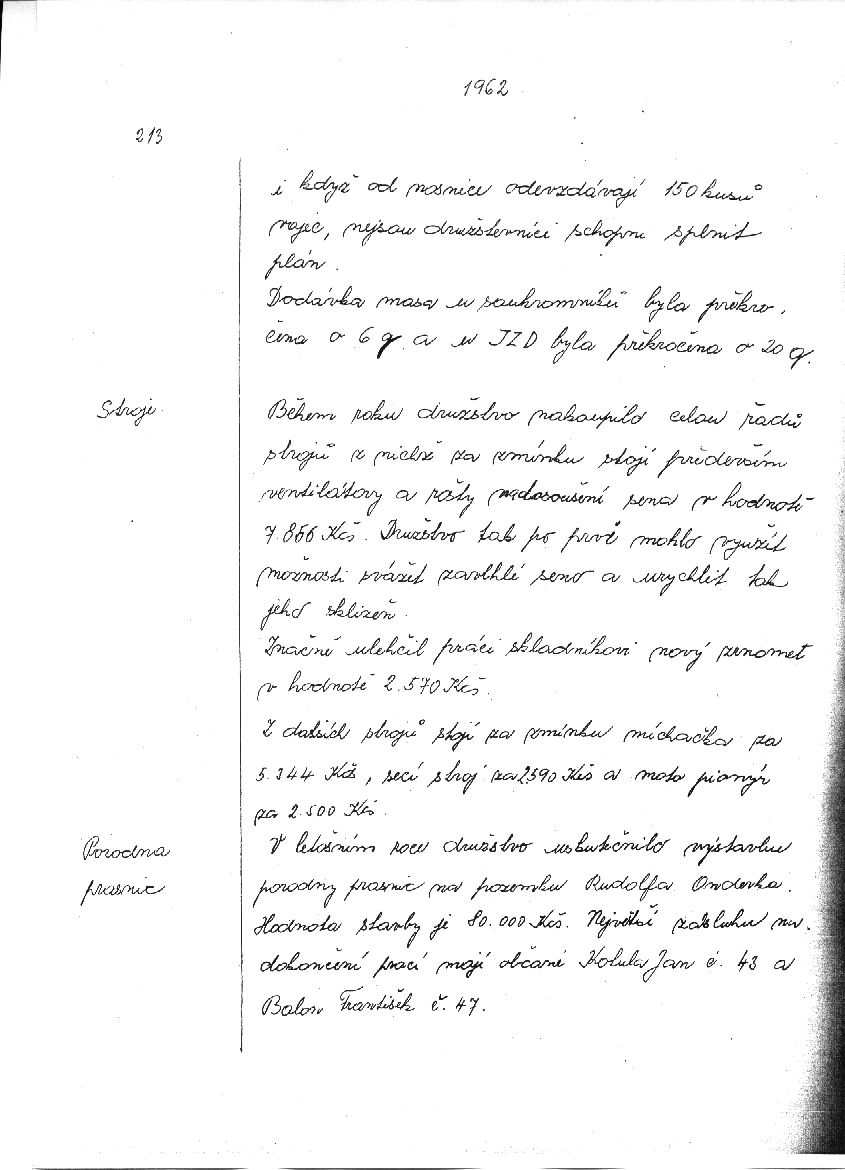 1962
213
i když od nosnice odevzdávají 150 kusů
vajec, nejsou družstevníci schopni splnit
plán.
Dodávka masa u soukromníků byla překro-
čena o 6 q a u JZD byla překročena o 20 q.
Stroje.
Během roku družstvo nakoupilo celou řadu
strojů z nichž za zmínku stojí především
ventilátory a rošty nadosoušení sena v hodnotě
7.856 Kčs. Družstvo tak po prvé mohlo využít
možnosti svážet zavlhlé seno a urychlit tak
jeho sklizeň.
Značně ulehčil práci skladníkovi nový zrnomet
v hodnotě 2.570 Kčs.
Z dalších strojů stojí za zmínku míchačka za
5.344 Kčs, secí stroj za 2590 Kčs a moto pionýr
za 2.500 Kčs.
Porodna
prasnic
V letošním roce družstvo uskutečnilo výstavbu
porodny prasnic na pozemku Rudolfa Onderka.
Hodnota stavby je 80.000 Kčs. Největší zásluhu na
dokončení prací mají občané Kotula Jan č. 43 a
Balon František č. 47.